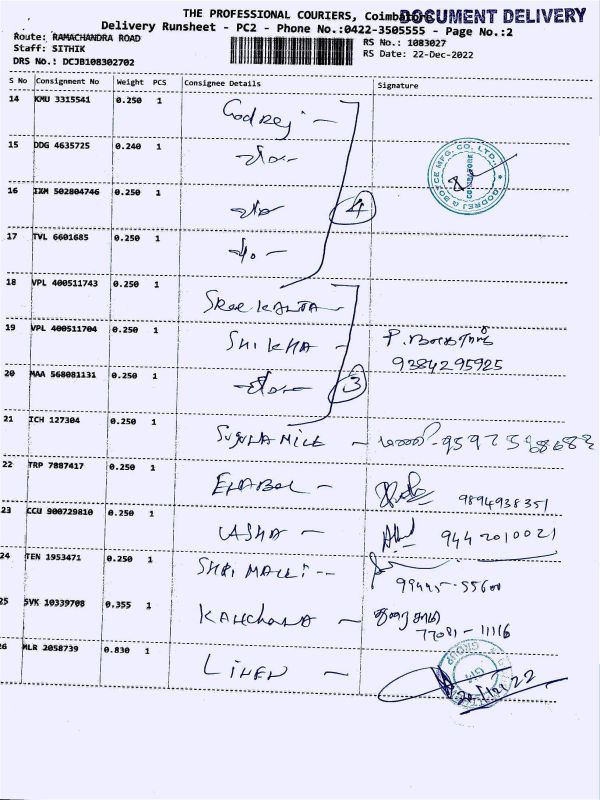 THE PROFESSIONAL COURIERS, Coimbatore
DOCUMENT DELIVERY
Delivery Runsheet - PC2 - Phone No.:0422-3505555 - Page No.:2
Route: RAMACHANDRA ROAD
RS No.: 1083027
Staff: SITHIK
RS Date: 22-Dec-2022
DRS No.: DCJB108302702
S No Consignment No Weight PCS Consignee Details Signature
14 KMU 3315541 0.250 1 Godrej -
15 DDG 4635725 0.240 1
GODREJ & BOYCE MFG. CO. LTD. COIMBATORE
16 IXM 502804746 0.250 1
4
17 TVL 6601685 0.250 1
18 VPL 400511743 0.250 1 SREE KALTA
19 VPL 400511704 0.250 1 SHIKHA -
9384295925
20 MAA 568081131 0.250 1
3
21 ICH 127304 0.250 1 SUGUNA MILL -
22 TRP 7087417 0.250 1 - 9894938351
23 CCU 900729810 0.250 1 USHA - 9442010021
24 TEN 1953471 0.250 1 SHRI MALLI --
99445-55600
25 SVK 10339708 0.355 1 KANCHANA -
77081-11116
26 MLR 2058739 0.830 1 LINEN -